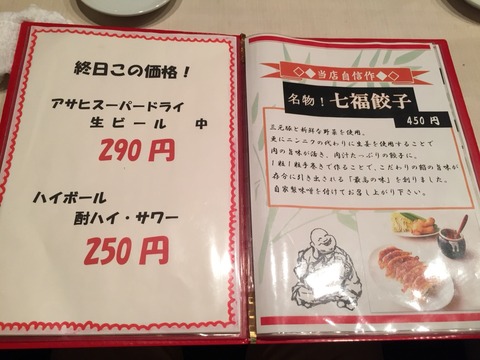 終日この価格！
アサヒスーパードライ
生ビール 中
290円
ハイボール
酎ハイ・サワー
250円
◇◆当店自信作◆◇
名物！七福餃子
450円
三元豚と新鮮な野菜を使用。
更にニンニクの代わりに生姜を使用することで
肉の旨味が活き、肉汁たっぷりの餃子に。
1粒1粒手巻きで作ることで、こだわりの餡の旨味が
存分に引き出される「最高の味」を創りました。
自家製味噌を付けてお召し上がり下さい。